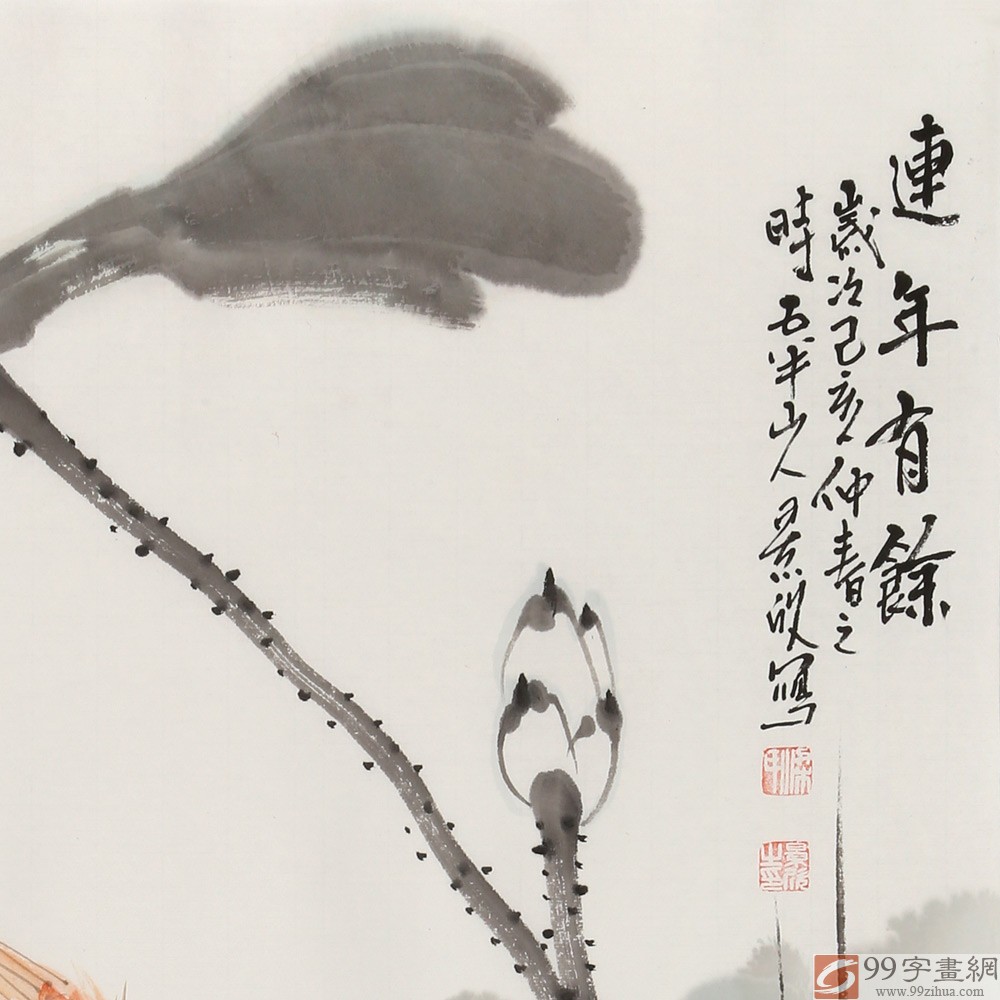 連年有餘
歲次己亥仲春之
時五半山人景欣寫
99字畫網
www.99zihua.com